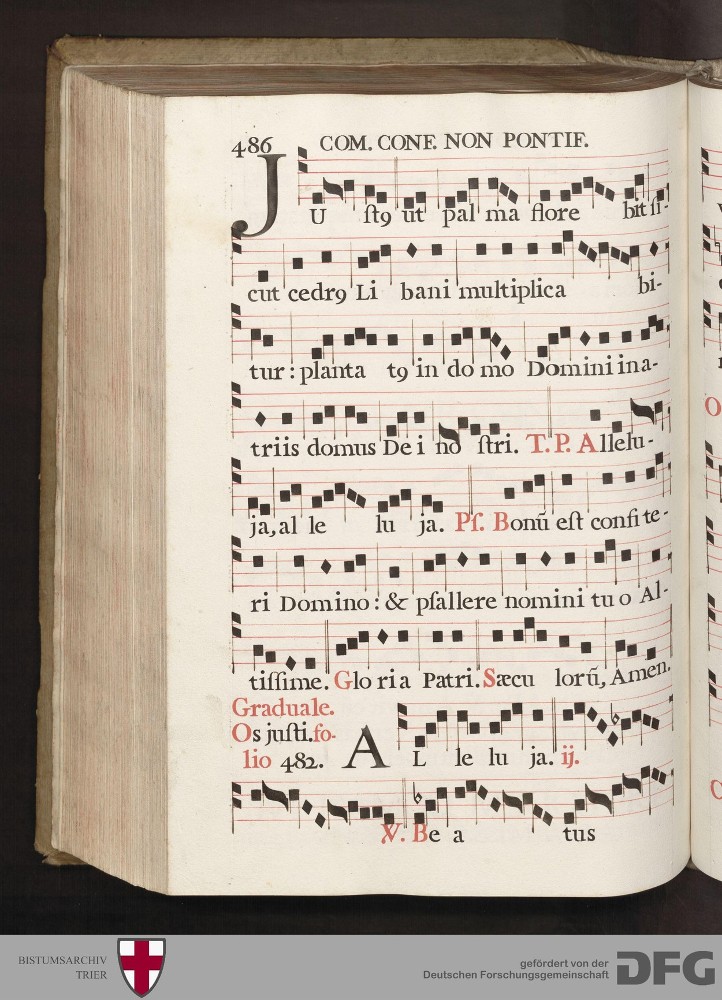 486 COM. CONF. NON PONTIF.
JU ſt9 ut pal ma flore bit ſi-
cut cedr9 Li bani multiplica bi-
tur: planta t9 in do mo Domini in a-
triis domus De i no ſtri. T. P. Allelu-
ja, al le lu ja. Pſ. Bonū eſt confite-
ri Domino: & pſallere nomini tu o Al-
tiſſime. Glo ri a Patri. Sæcu lorū, Amen.
Graduale.
Os juſti. fo-
lio 482. A L le lu ja. ij.
℣. Be a tus
BISTUMSARCHIV
TRIER
gefördert von der
Deutschen Forschungsgemeinschaft
DFG